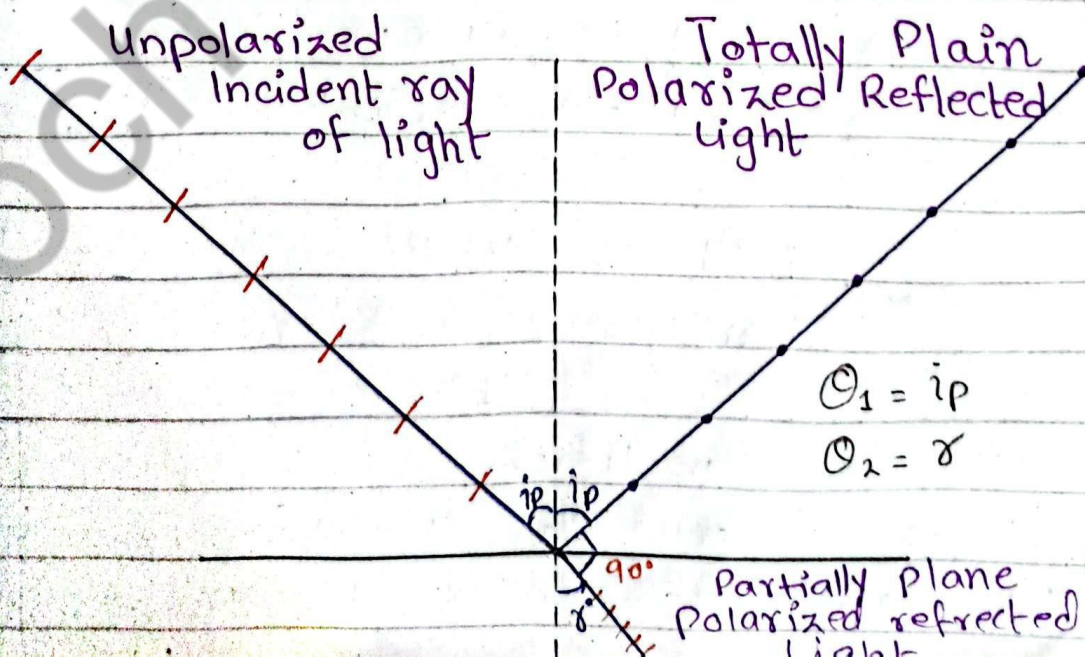 och
Unpolarized
Incident ray
of light
Totally Plain
Polarized Reflected
Light
θ₁ = ip
θ₂ = r
ip ip
90°
r
Partially plane
polarized refrected
Light